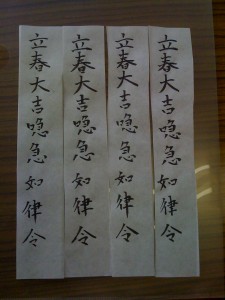 立春大吉喼急如律令
立春大吉喼急如律令
立春大吉喼急如律令
立春大吉喼急如律令